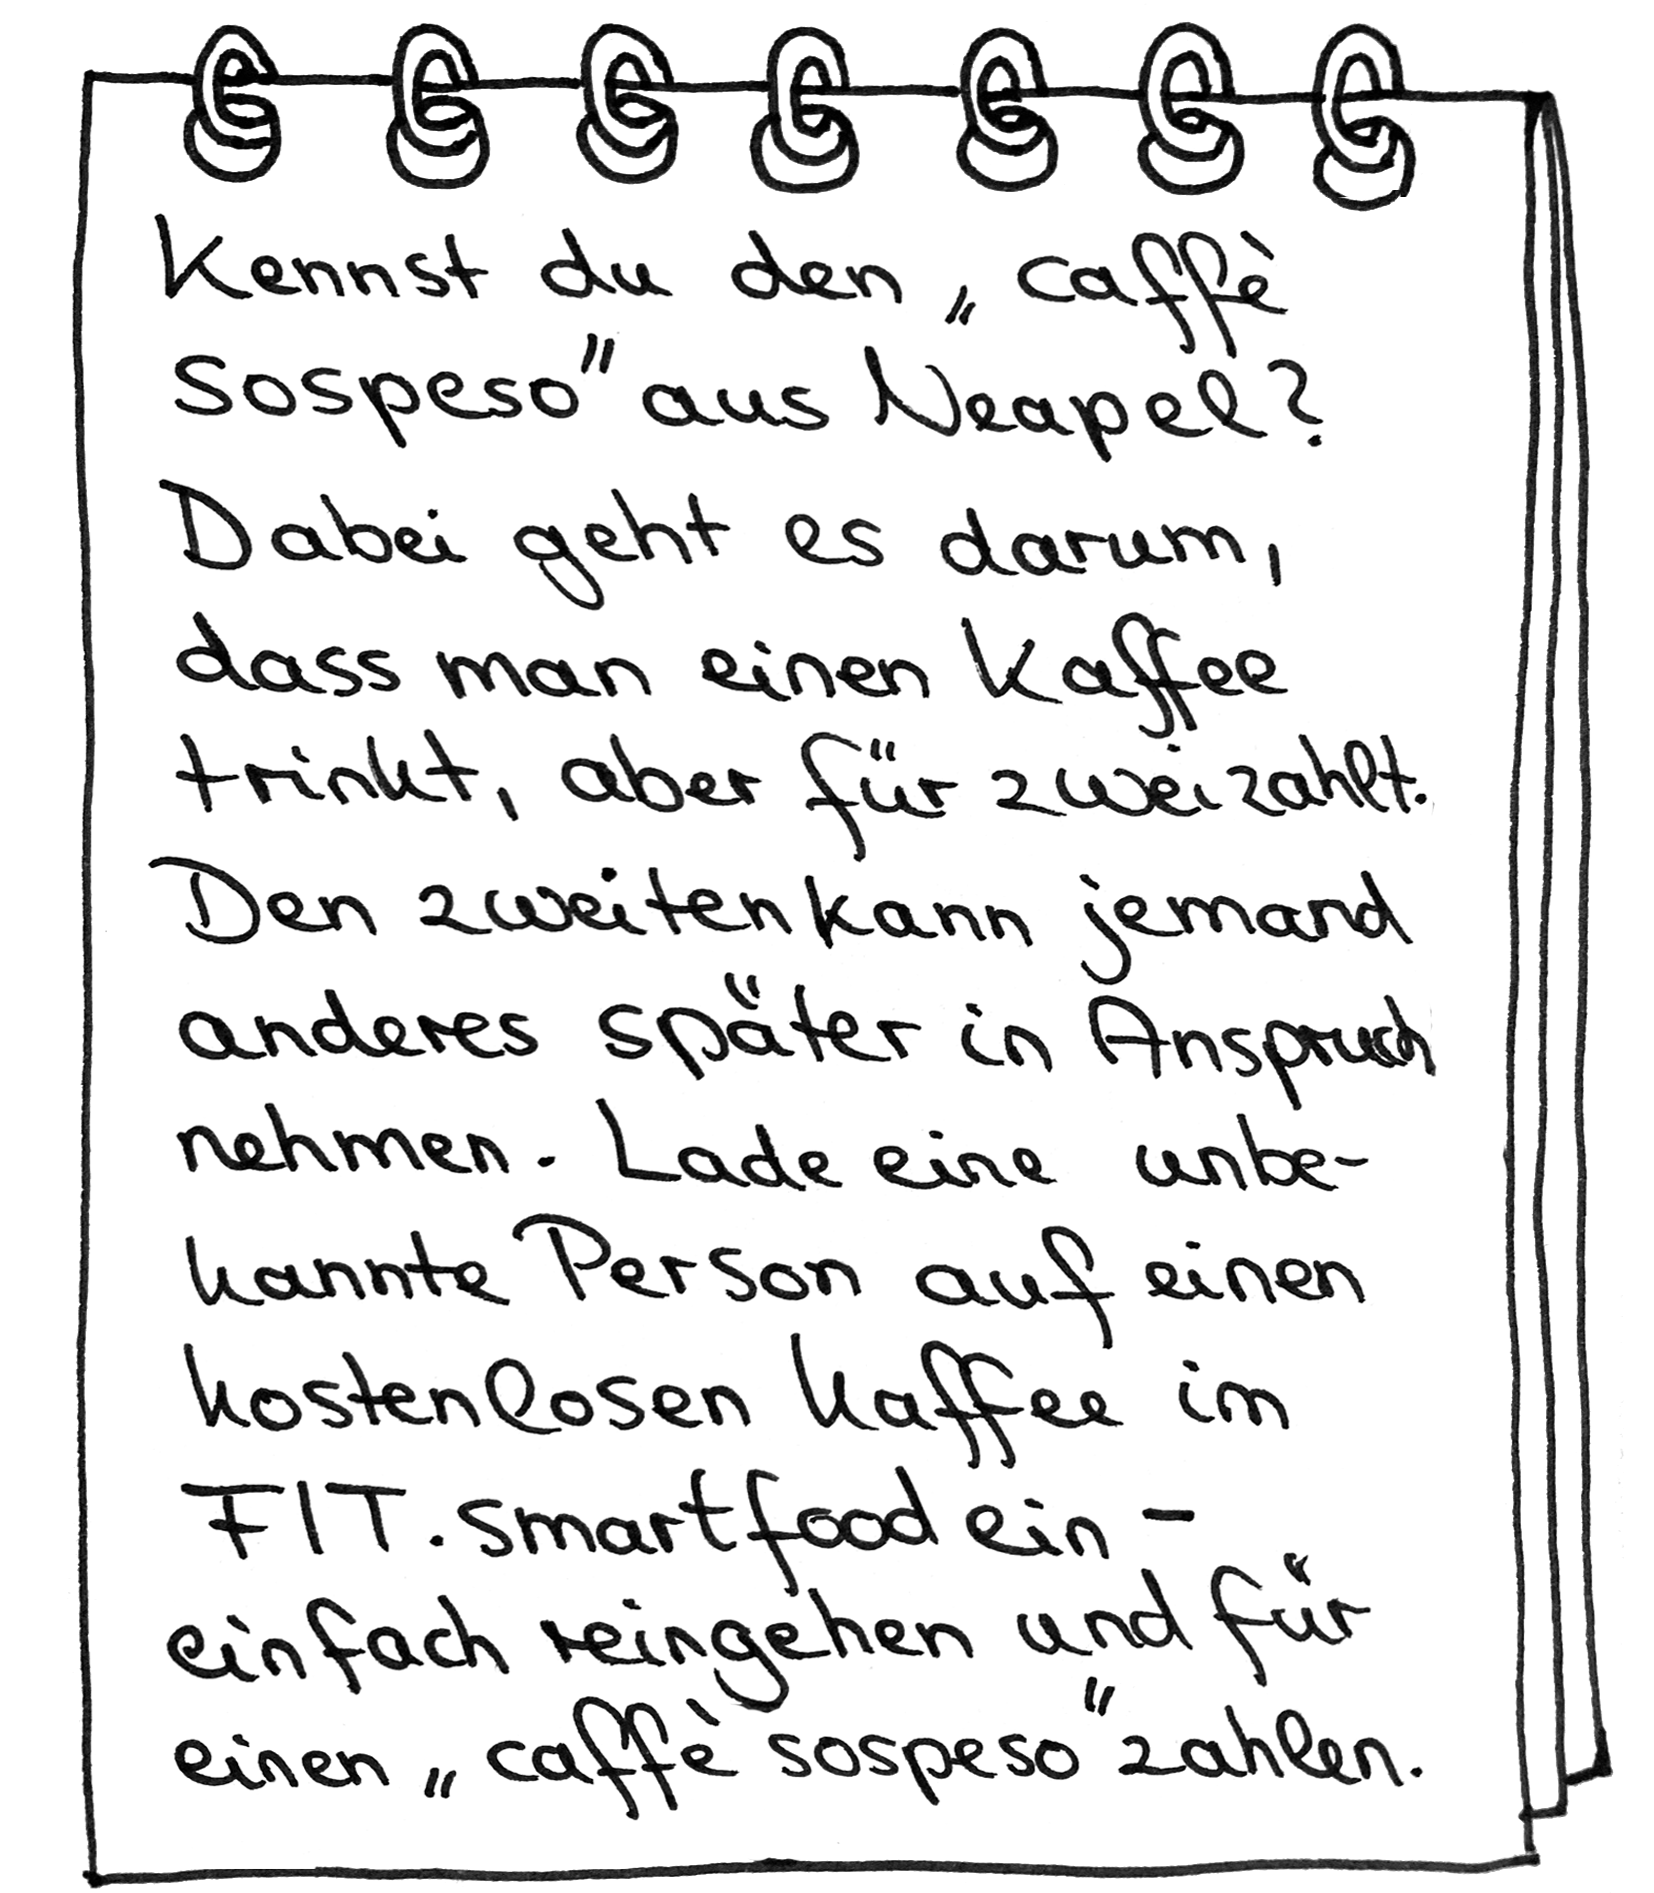 Kennst du den „caffè
sospeso" aus Neapel?
Dabei geht es darum,
dass man einen Kaffee
trinkt, aber für zwei zahlt.
Den zweiten kann jemand
anderes später in Anspruch
nehmen. Lade eine unbe-
kannte Person auf einen
kostenlosen Kaffee im
FIT.smartfood ein -
einfach reingehen und für
einen „caffè sospeso" zahlen.